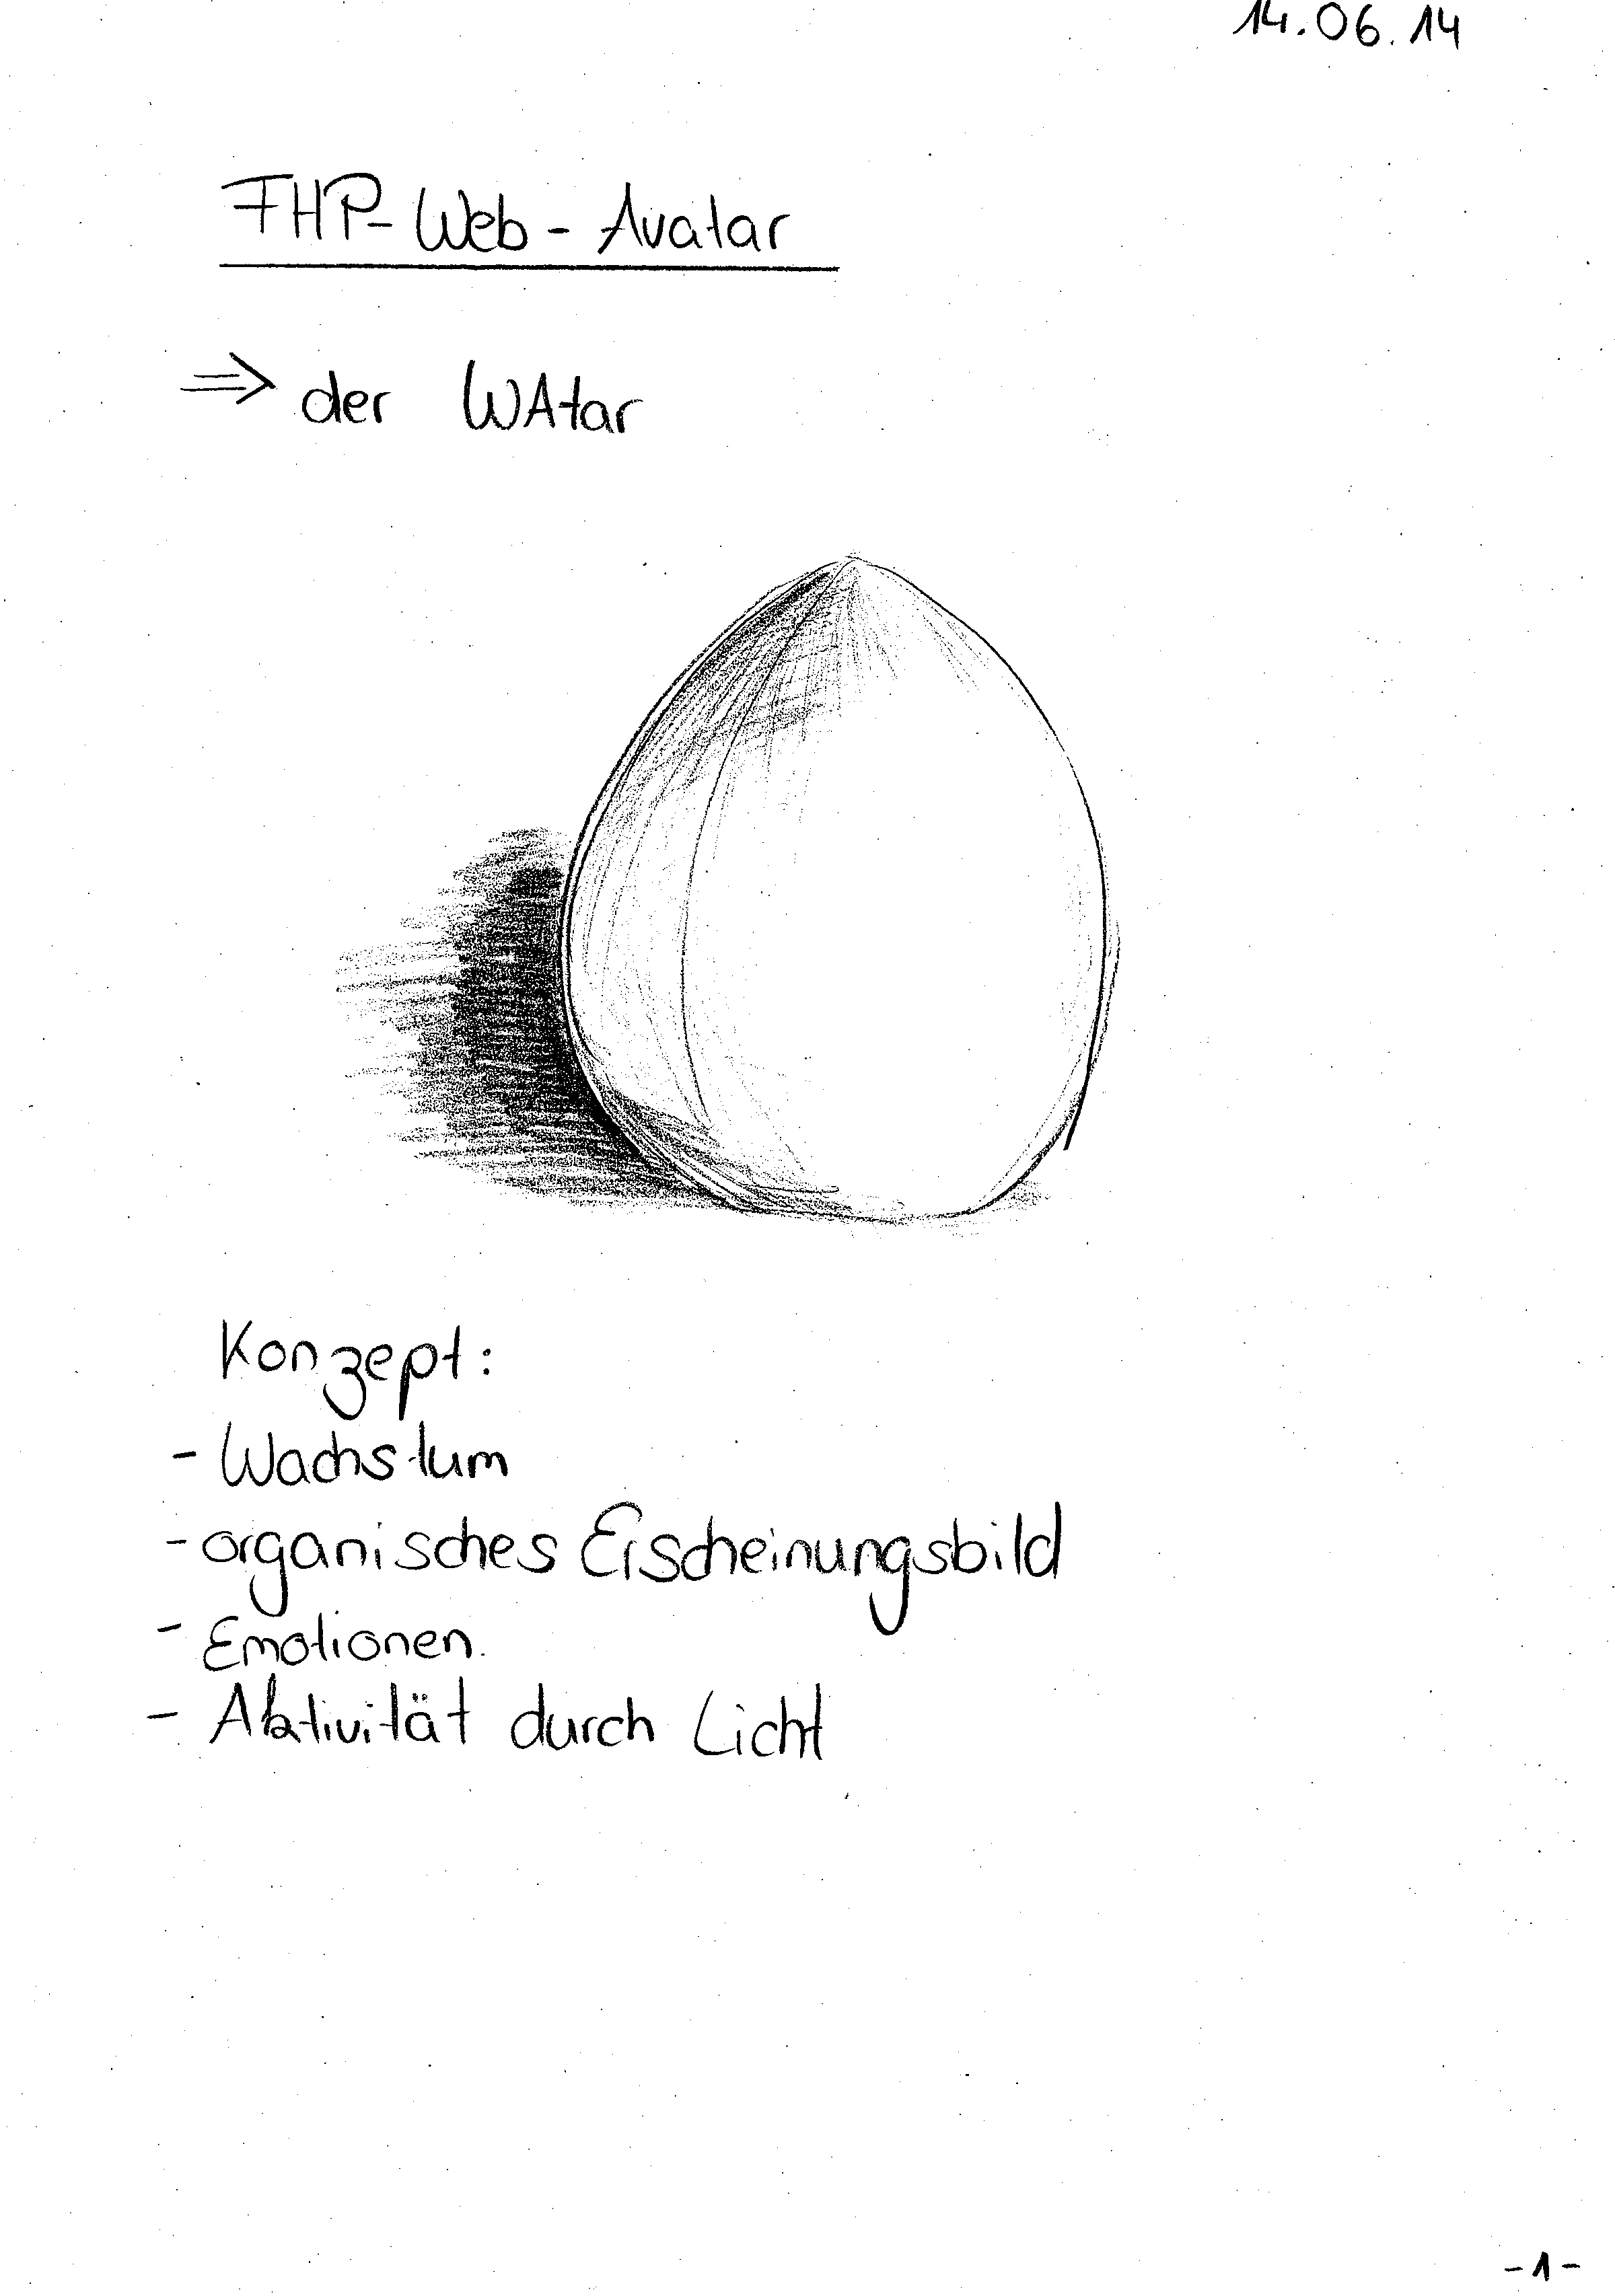 14.06.14
FHP-Web-Avatar
⇒ der WAtar
Konzept:
- Wachstum
- organisches Erscheinungsbild
- Emotionen.
- Aktivität durch Licht
-1-